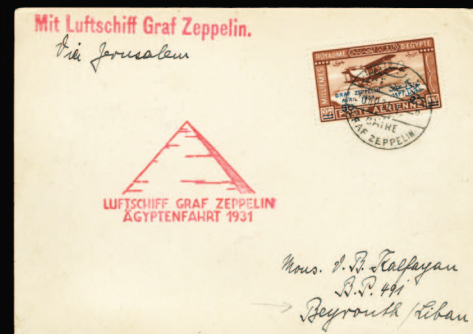 Mit Luftschiff Graf Zeppelin.
Via Jerusalem
ROYAUME D'EGYPTE
GRAF ZEPPELIN
AVRIL
POSTE AERIENNE
GRAF ZEPPELIN
LUFTSCHIFF GRAF ZEPPELIN
ÄGYPTENFAHRT 1931
Mons. V. B. Kalfayan
B.P. 491
Beyrouth/Liban